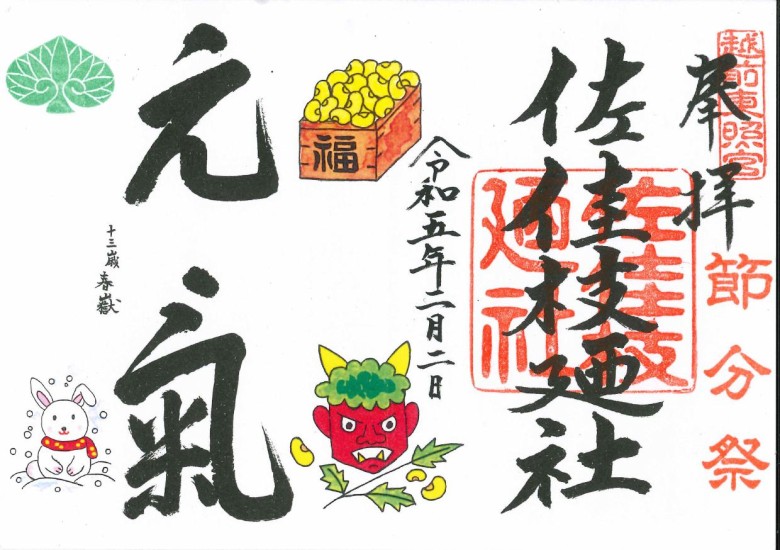 越前東照宮
奉拝
節分祭
佐佳枝廼社
佐佳枝
廼社
令和五年二月二日
福
元氣
十三歳 春嶽